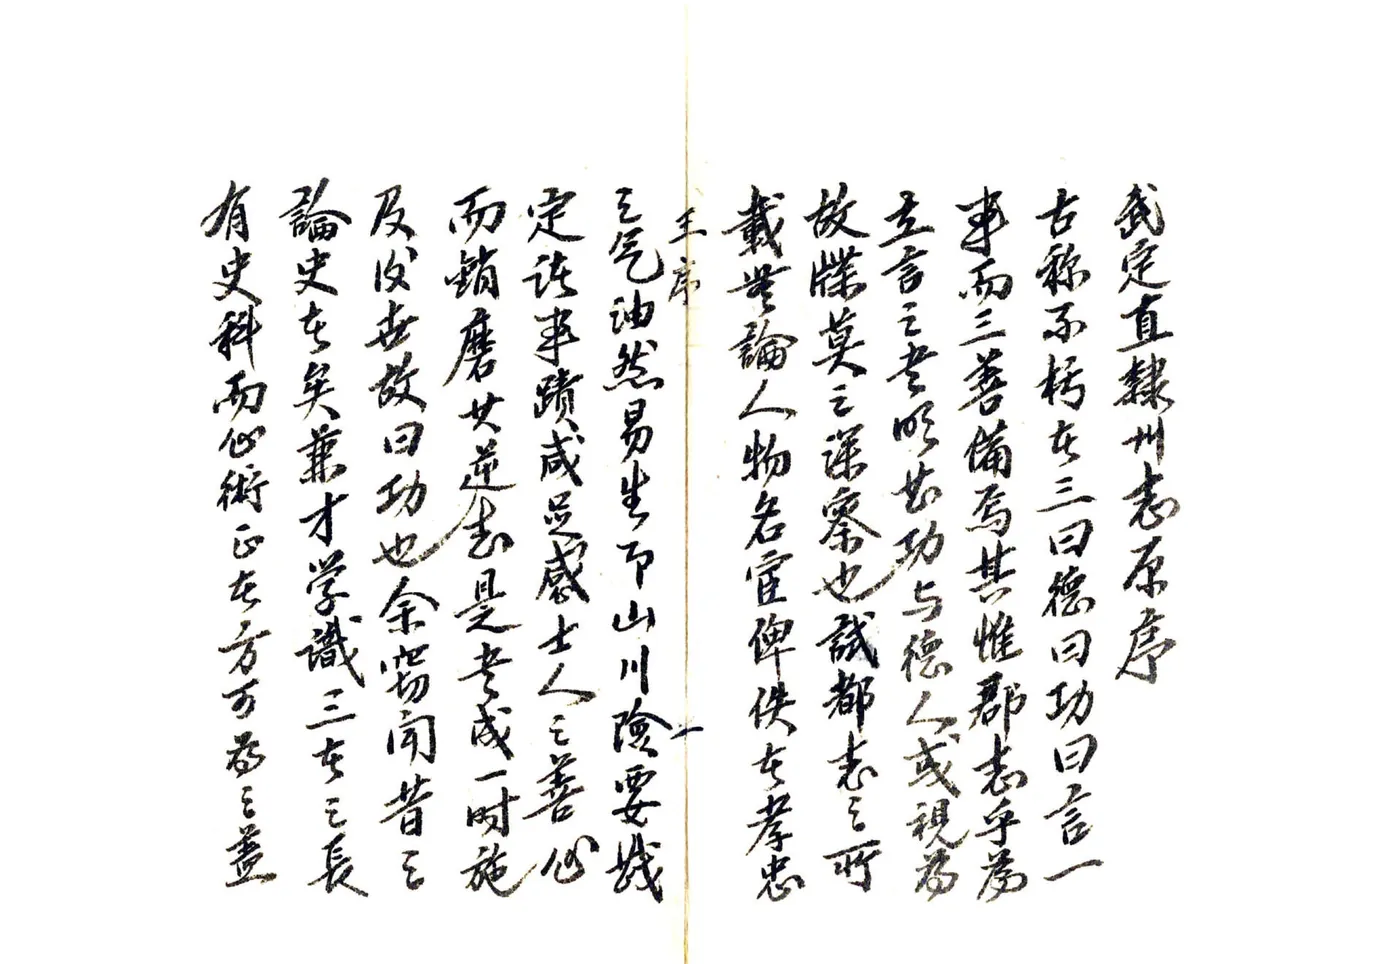 武定直隸州志原序
古称不朽者三曰德曰功曰言一
事而三善備焉其惟郡志乎為
立言之书顾其功与德人或視為
故牒莫之深察也試都志之所
載無論人物名宦俾佚者孝忠
王序
一
之气油然易生即山川險要戡
定諸事蹟咸足感士人之善心
而銷磨其逆志是书成一时施
及後世故曰功也余窃闻昔之
論史者矣兼才学識三者之長
有史科而心術正者方可為之蓋